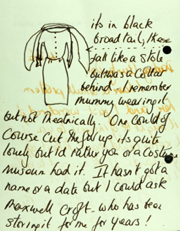 its in black
broadtail, these
fall like a stole
but was a collar
behind. I remember
mummy wearing it
but not Theatrically. One could of
Course cut the fur up its quite
lovely but Id rather you or a Costume
museum had it. It hasn't got a
name or a date but I could ask
Maxwell Croft - who has been
storing it for me for years!